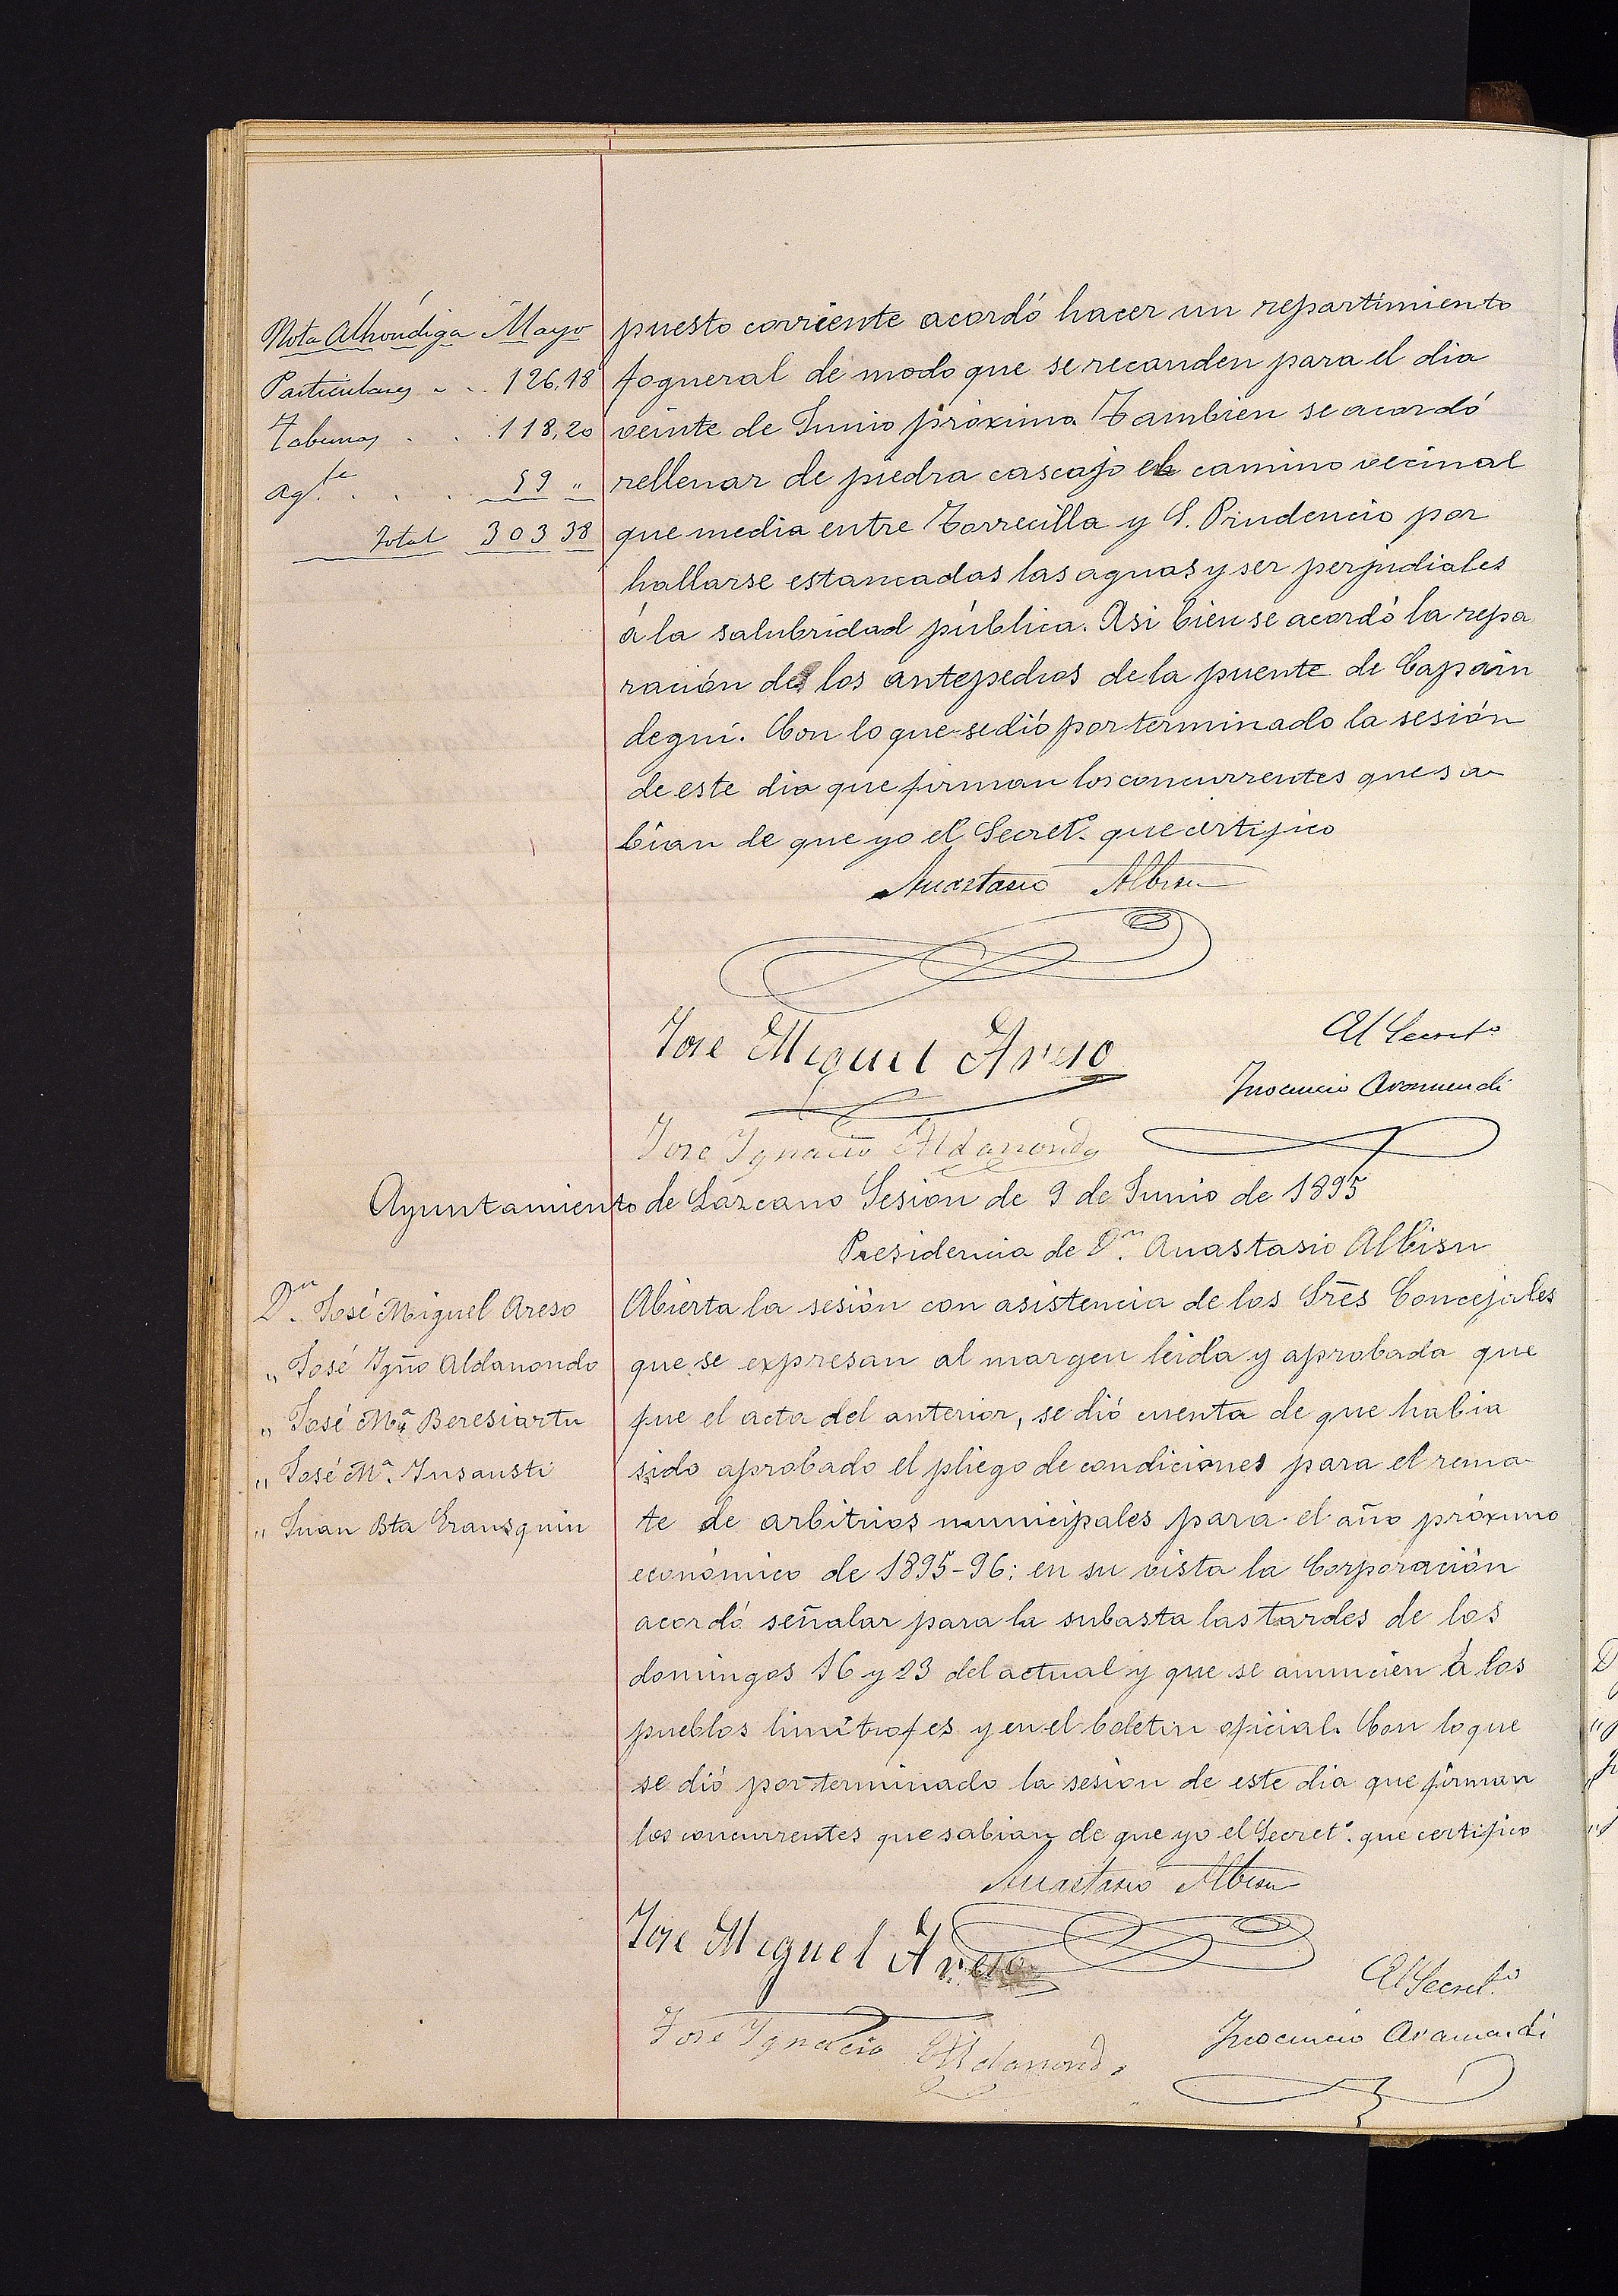 Nota Alhóndiga Mayo
Particulares . . 126,18
Tabernas . . . 118,20
Agte. . . . 59 "
Total 303 38
puesto corriente acordó hacer un repartimiento
fogueral de modo que se recauden para el dia
veinte de Junio próximo. Tambien se acordó
rellenar de piedra cascajo el camino vecinal
que media entre Torrecilla y S. Prudencio por
hallarse estancadas las aguas y ser perjudiales
á la salubridad pública. Asi bien se acordó la repa
ración de los antepedios de la puente de Capain
degui. Con lo que se dió por terminado la sesión
de este dia que firman los concurrentes que sa
bian de que yo el Secretº. que certifico
Anastasio Albisu
Jose Miguel Areso
El Secretº
Inocencio Aramendi
Jose Ignacio Aldanondo
Ayuntamiento de Lazcano Sesión de 9 de Junio de 1895
Presidencia de Dn. Anastasio Albisu
Dn. José Miguel Areso
" José Igño Aldanondo
" José Mª Beresiartu
" José Mª. Insausti
" Juan Bta Eransquin
Abierta la sesión con asistencia de los Sres Concejales
que se expresan al margen leida y aprobada que
fue el acta del anterior, se dió cuenta de que habia
sido aprobado el pliego de condiciones para el rema-
te de arbitrios municipales para el año próximo
económico de 1895-96: en su vista la Corporación
acordó señalar para la subasta las tardes de los
domingos 16 y 23 del actual y que se anuncien á los
pueblos limítrofes y en el boletin oficial. Con lo que
se dió por terminado la sesión de este dia que firman
los concurrentes que sabian de que yo el Secretº. que certifico
Anastasio Albisu
Jose Miguel Areso
El Secretº
Jose Ignacio Aldanondo
Inocencio Aramendi